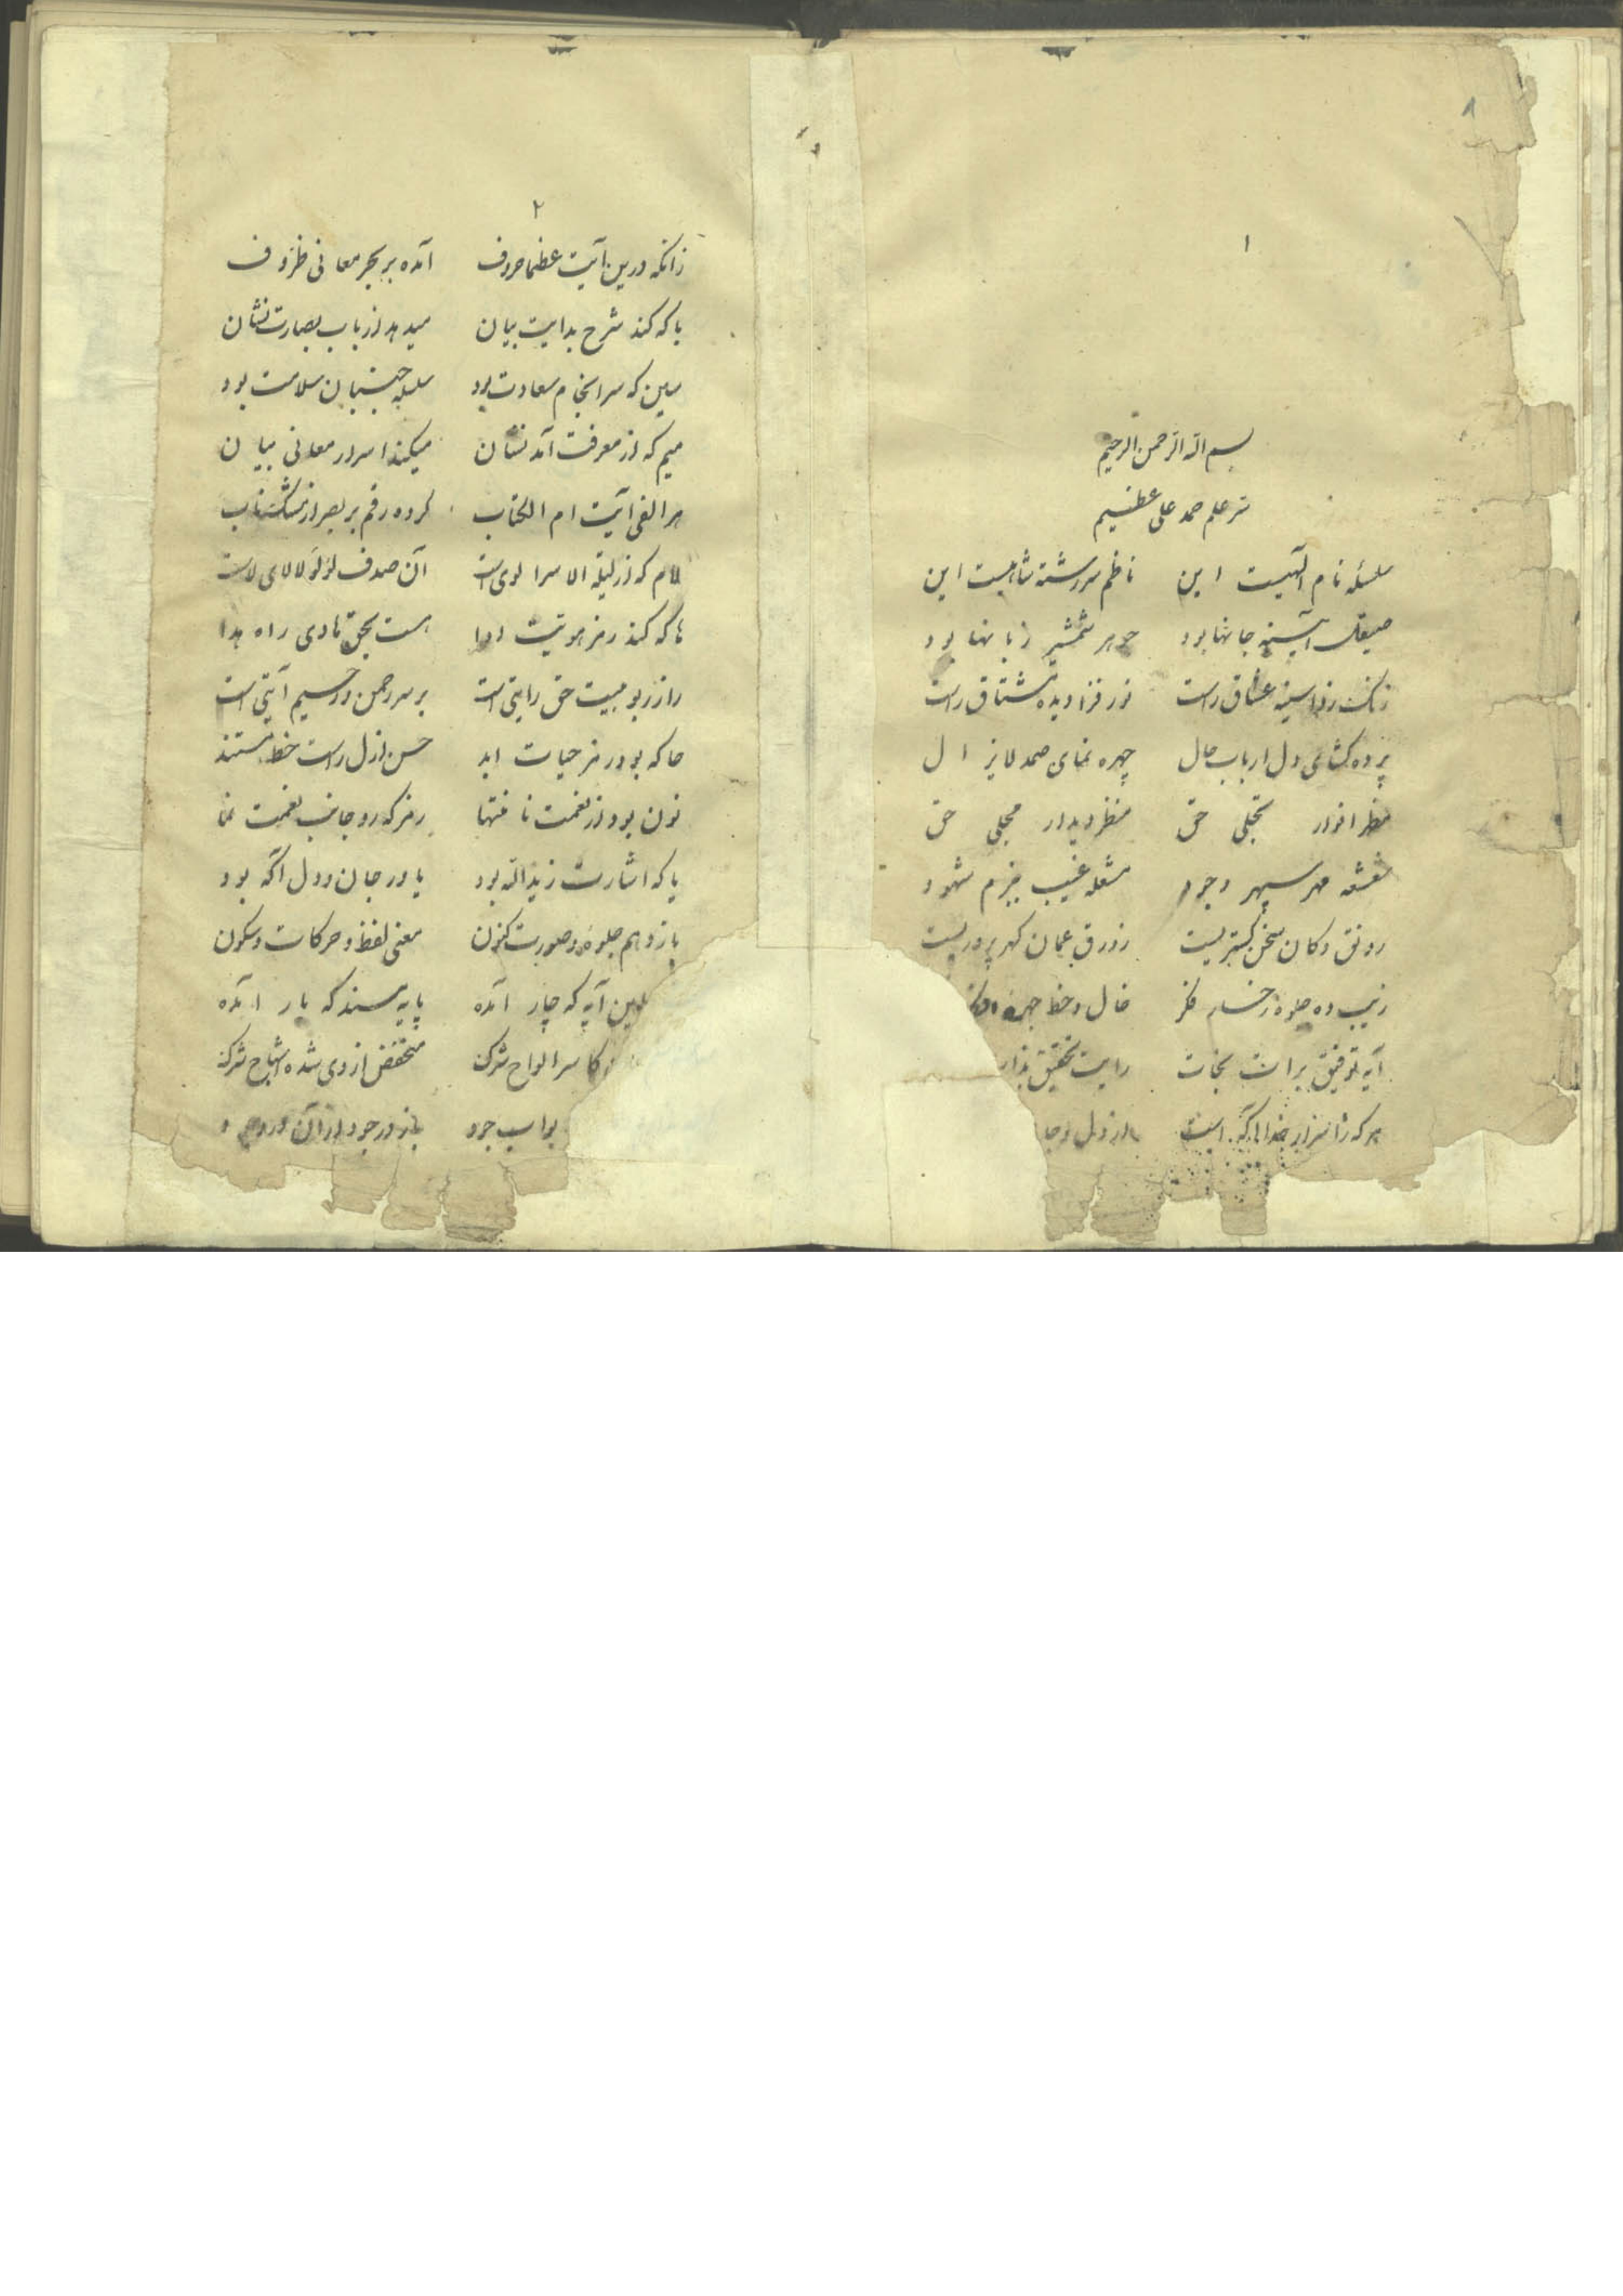 ۸
۱
بسم الله الرحمن الرحیم
سر علم حمد علی عظیم
سلسله نام الهیست این ناظم سررشته شاهیست این
صیقل آیینه جانها بود جوهر شمشیر زبانها بود
زنک زدا سینه عشاق راست نور فزا دیده مشتاق راست
پرده کشای دل ارباب حال چهره نمای صمد لایزال
مظهر انوار تجلی حق منظر دیدار مجلی حق
شعشعه مهر سپهر وجود مشعله غیب بزم شهود
رونق دکان سخن کستریست زورق عمان کهر پروریست
زیب ده جلوه رخسار فکر خال و خط چهره
آیه توفیق برات نجات رایت تحقیق
هر که ز اسرار خدا آکه است از دل و جا
۲
زانکه درین آیت عظما حروف آمده بر بحر معانی ظروف
با که کند شرح بدایت بیان میدهد از باب بصارت نشان
سین که سرانجام سعادت بود سلسله جنبان سلامت بود
میم که از معرفت آمد نشان میکند اسرار معانی بیان
هر الفی آیت ام الکتاب کرده رقم بر بصر از
لام که از لیلة الاسرا لوی است آن صدف لؤلؤ لالای لاست
ها که کند رمز هویت ادا هست بحق هادی راه هدا
را ز ربوبیت حق رایتی است بر سر رحمن و رحیم آیتی است
حا که بود رمز حیات ابد حسن ازل راست خط مستند
نون بود از نعمت نا منتها رمز که رو جانب نعمت نما
یا که اشارت ز ید الله بود یا در جان و دل آکه بود
باز دهم جلوه و صورت کنون معنی لفظ و حرکات و سکون
این آیه که چار آمده پایه سند که بار آمده
کاسر الواح شرک منخفض از وی شده اشباح شرک
بواب جود باز در جود از آن در وجود